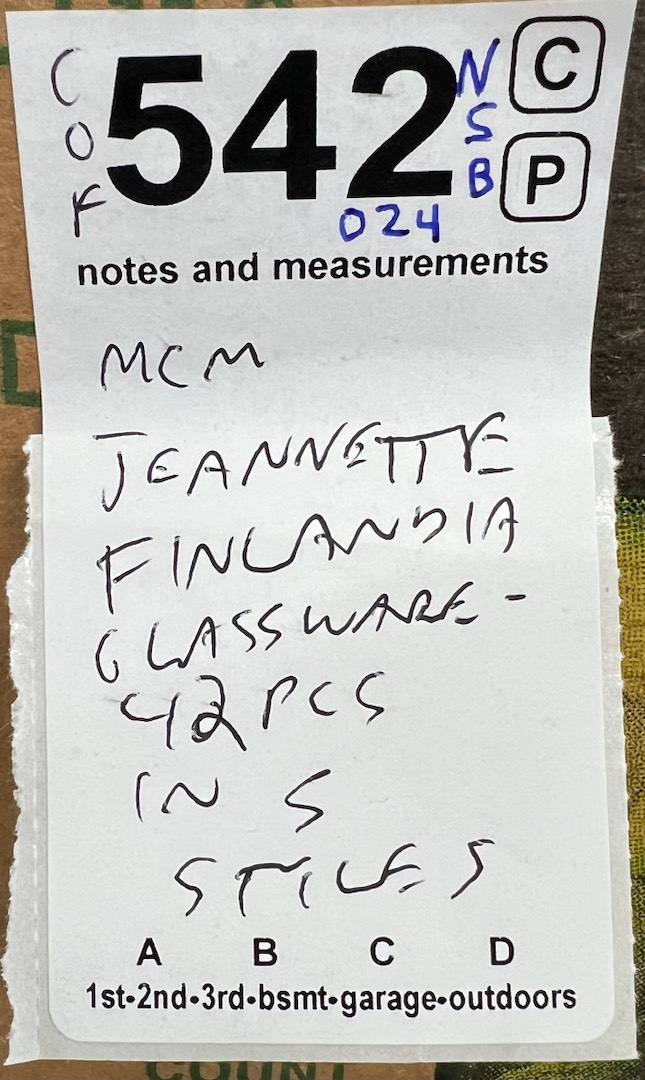 COF
542
NSB
C
P
024
notes and measurements
MCM
JEANNETTE
FINLANDIA
GLASSWARE-
42 PCS
IN 5
STYLES
A B C D
1st•2nd•3rd•bsmt•garage•outdoors
COUNT